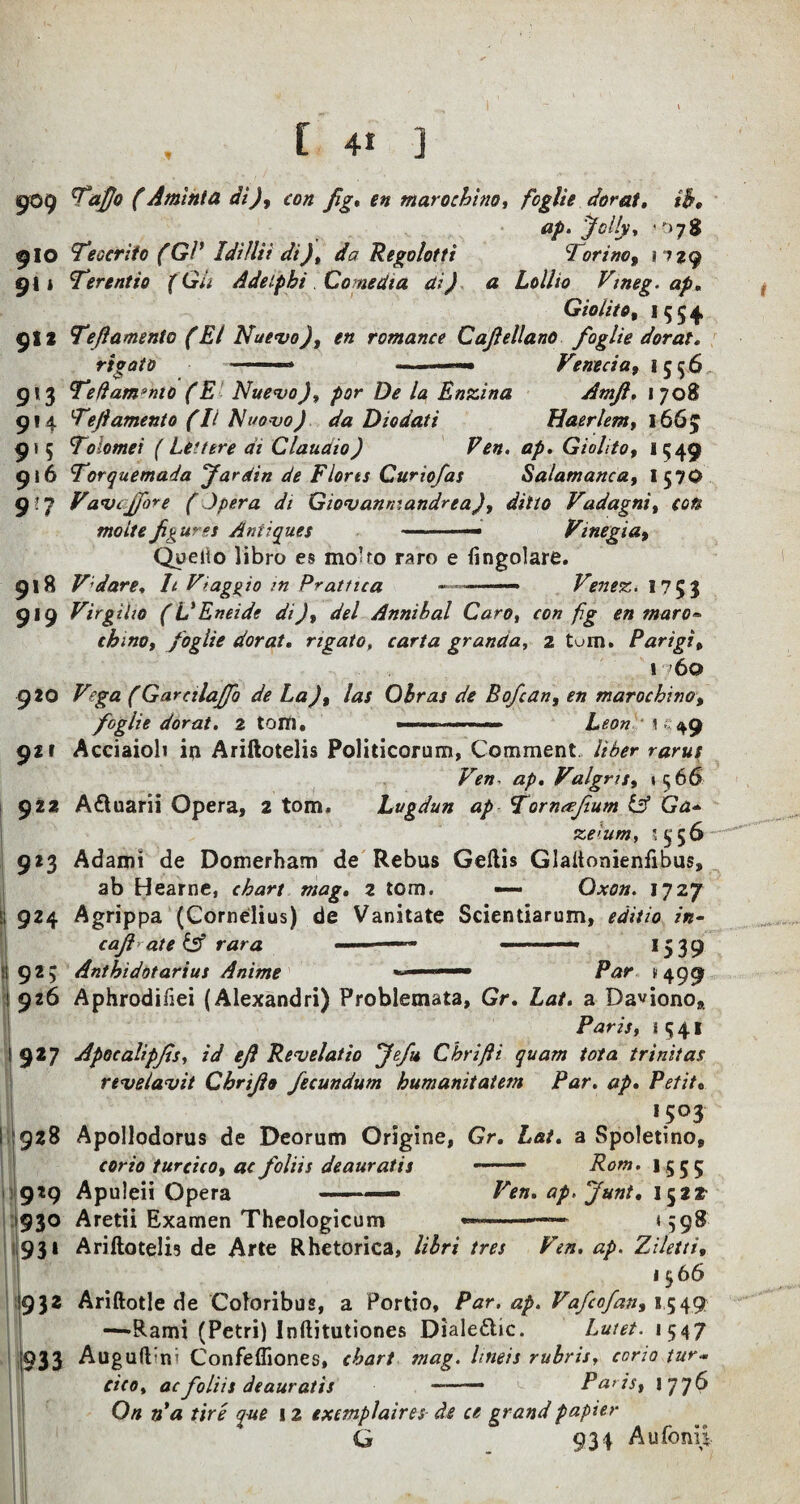 [ 41 ]
909 Taſſo (Aminta di), con fig. en marochino, foglie dorat. ib.
ap. Jolly,
910 Teocrito (Gl' Idillii di), da Regolotti Torino, 1729
911 Terentio (Gli Adelphi Comedia di) a Lollio Vineg. ap.
Giolito, 1554
912 Teſtamento (El Nuevo), en romance Caſtellano foglie dorat.
rigato ——— ——— Venecia, 1556
913 Teſtamento (El Nuevo), por De la Enzina Amſt. 1708
914 Teſtamento (Il Nuovo) da Diodati Haerlem, 1665
915 Tolomei (Lettere di Claudio) Ven. ap. Giolito, 1549
916 Torquemada Jardin de Flores Curioſas Salamanca, 1570
917 Vavaſſore (Opera di Giovanniandrea), ditto Vadagni, con
molte figures Antiques ——— Vinegia,
Queſto libro es molto raro e ſingolare.
918 Vidare, Il Viaggio in Prattica ——— Venez. 1753
919 Virgilio (L'Eneide di), del Annibal Caro, con fig en maro-
chino, foglie dorat. rigato, carta granda, 2 tom. Parigi,
1760
920 Vega (Garcilaſſo de La), las Obras de Boſcan, en marochino,
foglie dorat. 2 tom. ——— Leon 1549
921 Acciaioli in Ariſtotelis Politicorum, Comment. liber rarus
Ven. ap. Valgris, 1566
922 Actuarii Opera, 2 tom. Lugdun ap Tornæſium & Ga-
zeium, 1556
923 Adami de Domerham de Rebus Geſtis Glaſtonienſibus,
ab Hearne, chart mag. 2 tom. — Oxon. 1727
924 Agrippa (Cornelius) de Vanitate Scientiarum, editio in-
caſtrate & rara ——— ——— 1539
925 Anthidotarius Anime ——— Par 1499
926 Aphrodiſiei (Alexandri) Problemata, Gr. Lat. a Daviono,
Paris, 1541
927 Apocalipſis, id eſt Revelatio Jeſu Chriſti quam tota trinitas
revelavit Chriſto ſecundum humanitatem Par. ap. Petit.
1503
928 Apollodorus de Deorum Origine, Gr. Lat. a Spoletino,
corio turcico, ac foliis deauratis —— Rom. 1555
929 Apuleii Opera ——— Ven. ap. Junt. 1522
930 Aretii Examen Theologicum ——— 1598
931 Ariſtotelis de Arte Rhetorica, libri tres Ven. ap. Ziletti,
1566
932 Ariſtotle de Coloribus, a Portio, Par. ap. Vaſcoſan, 1549
—Rami (Petri) Inſtitutiones Dialectic. Lutet. 1547
933 Auguſtini Confeſſiones, chart mag. lineis rubris, corio tur-
cico, ac foliis deauratis —— Paris, 1776
On n'a tiré que 12 exemplaires de ce grand papier
G 934 Auſonii